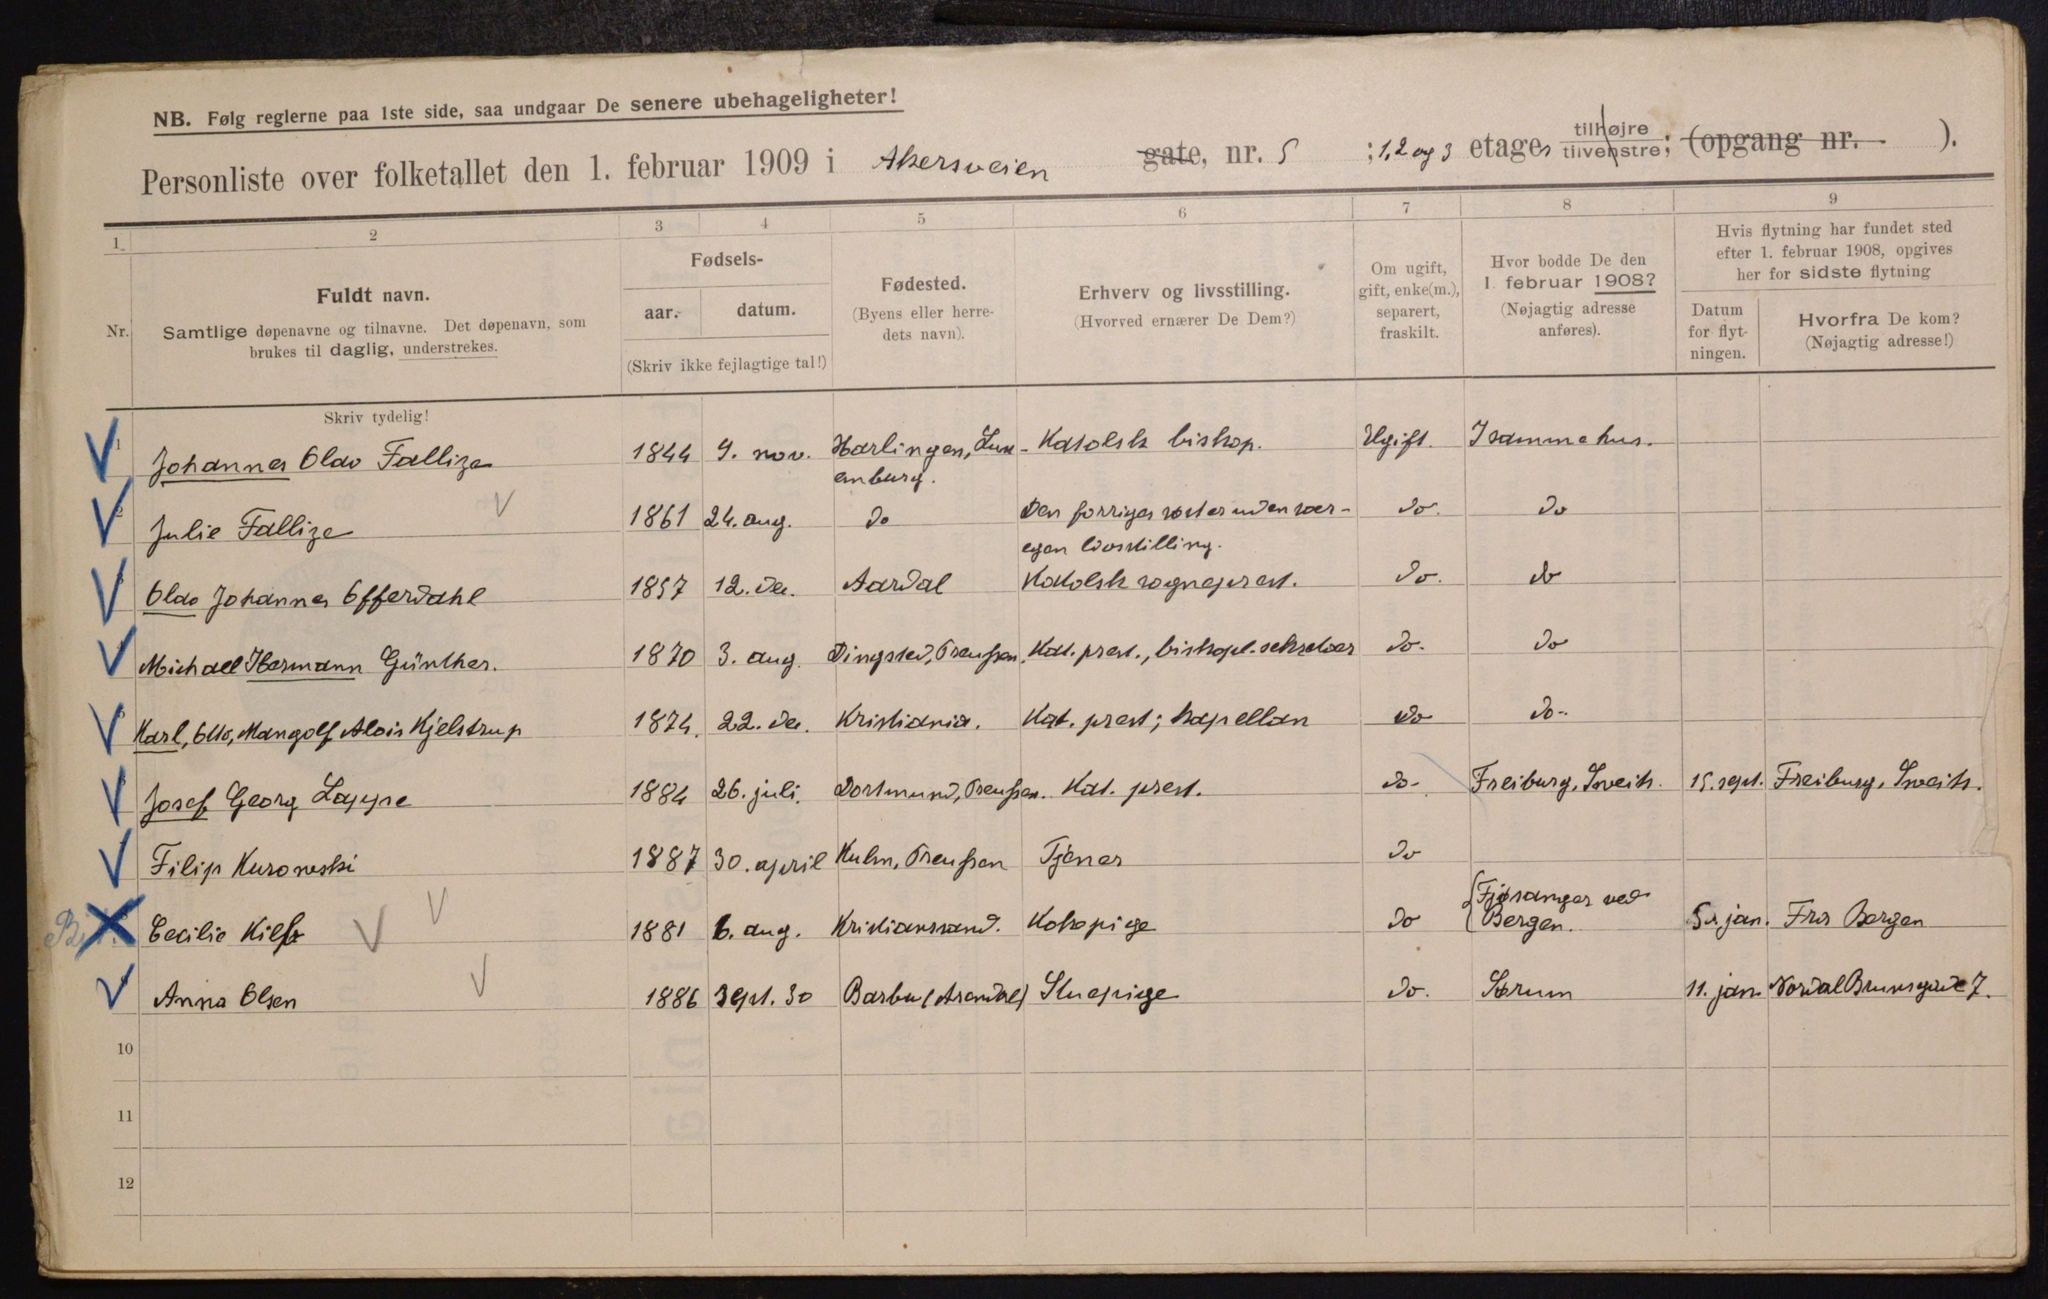 NB. Følg reglerne paa 1ste side, saa undgaar De senere ubehageligheter!
Personliste over folketallet den 1. februar 1909 i Akersveien gate, nr. 5 ; 1, 2 og 3 etages tilhøjre tilvenstre; (opgang nr. ).
1 2 3 4 5 6 7 8 9
Nr.
Fuldt navn.
Samtlige døpenavne og tilnavne. Det døpenavn, som
brukes til daglig, understrekes.
Fødsels-
aar. datum.
(Skriv ikke fejlagtige tal!)
Fødested.
(Byens eller herre-
dets navn).
Erhverv og livsstilling.
(Hvorved ernærer De Dem?)
Om ugift,
gift, enke(m.),
separert,
fraskilt.
Hvor bodde De den
1. februar 1908?
(Nøjagtig adresse
anføres).
Hvis flytning har fundet sted
efter 1. februar 1908, opgives
her for sidste flytning
Datum
for flyt-
ningen.
Hvorfra De kom?
(Nøjagtig adresse!)
Skriv tydelig!
1 Johannes Olav Fallize 1844 9. nov. Harlingen, Lux- Katolsk biskop. Ugift. I samme hus.
emburg.
2 Julie Fallize 1861 24. aug. do Den forriges søster uden sær- do. do
egen livsstilling.
3 Olav Johannes Offerdahl 1857 12. de. Aardal Katolsk sogneprest. do. do
4 Michael Hermann Günther. 1870 3. aug. Dingsted, Preussen. Kat. prest., biskopl. sekretær do. do
5 Karl, Otto, Mangolf Alois Kjelstrup 1874. 22. de. Kristiania. Kat. prest; kapellan do do.
6 Josef Georg Lappe 1884 26. juli. Dortmund, Preussen. Kat. prest. do. Freiburg, Sveits. 15. sept. Freiburg, Sveits.
Filip Kurowski 1887 30. april Kulm, Preussen Tjener do
Cecilie 1881 6. aug. Kristianssand. Kokepige do Fjøsanger ved
Bergen. 5. jan. Fra Bergen
Anna Olsen 1886 Sept. 30 Barbu (Arendal) Stuepige do. Sørum 11. jan. Nordal Brunsgade 7.
10
11
12